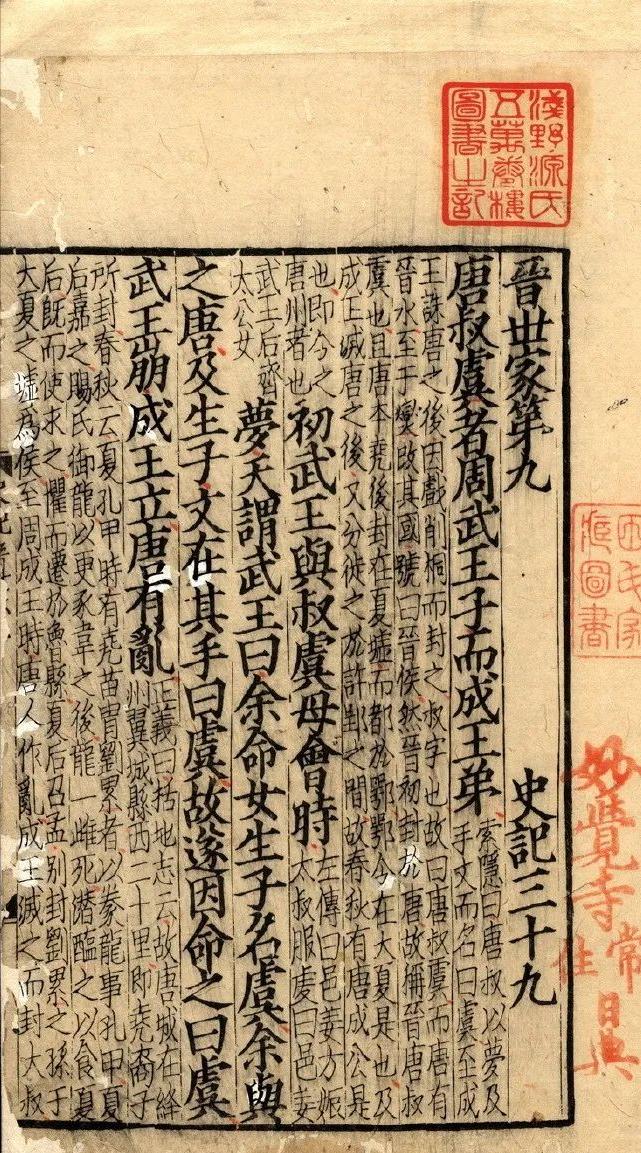 晉世家第九　史記三十九
唐叔虞者周武王子而成王弟索隱曰唐叔以夢及手文而名曰虞至成
王誅唐之後因戲削桐而封之叔字也故曰唐叔虞而唐有
晉水至于燮改其國號曰晉侯然晉初封於唐故稱晉唐叔
虞也且唐本堯後封在夏墟而都於鄂鄂今在大夏是也及
成王滅唐之後又分徙之於許郢之間故春秋有唐成公是
也即今之唐州者也初武王與叔虞母會時左傳曰邑姜方娠太叔服虔曰邑姜
武王后齊太公女夢天謂武王曰余命女生子名虞余與
之唐及生子文在其手曰虞故遂因命之曰虞
武王崩成王立唐有亂正義曰括地志云故唐城在絳州翼城縣西二十里即堯裔子
所封春秋云夏孔甲時有堯苗冑劉累者以豢龍事孔甲夏
后嘉之賜氏御龍以更豕韋之後龍一雌死潛醢之以食夏
后既而使求之懼而遷於魯縣夏后召孟別封劉累之孫于
大夏之墟為侯至周成王時唐人作亂成王滅之而封大叔
淺野源氏
五萬卷樓
圖書之記
妙覺寺常住日典